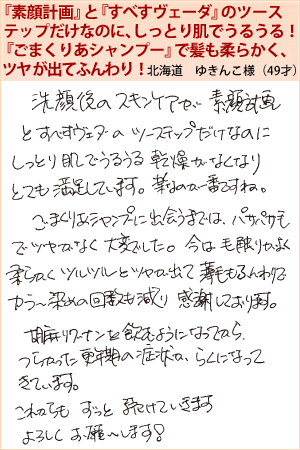 『素顔計画』と『すべすヴェーダ』のツース
テップだけなのに、しっとり肌でうるうる！
『ごまくりあシャンプー』で髪も柔らかく、
ツヤが出てふんわり！北海道　ゆきんこ様（49才）
洗顔後のスキンケアが 素顔計画
とすべすヴェーダの ツーステップだけなのに
しっとり肌でうるうる 乾燥がなくなり
とても満足しています。楽なのが一番ですね。
ごまくりあシャンプーに出会うまでは、パサパサ
でツヤがなく大変でした。今は毛触りがよく
柔らかく ツルツルとツヤが出て 薄毛もふんわりで
カラー染めの回数も減り 感謝しております。
胡麻リグナンを飲むようになってから、
つらかった更年期の症状が、らくになって
きています。
これからも ずっと 続けていきます
よろしく お願いします！